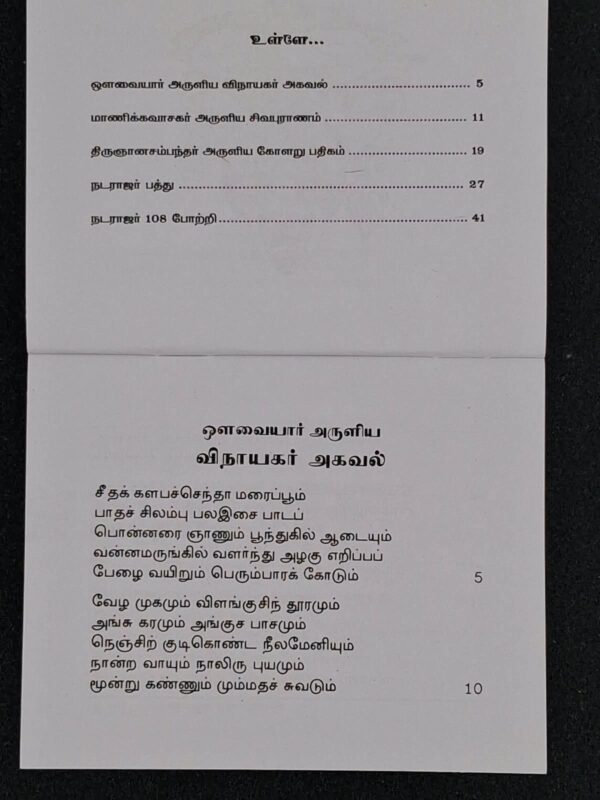 உள்ளே...
ஔவையார் அருளிய விநாயகர் அகவல் ................................... 5
மாணிக்கவாசகர் அருளிய சிவபுராணம் ................................... 11
திருஞானசம்பந்தர் அருளிய கோளறு பதிகம் ............................. 19
நடராஜர் பத்து .................................................................... 27
நடராஜர் 108 போற்றி ........................................................... 41
ஔவையார் அருளிய
விநாயகர் அகவல்
சீதக் களபச்செந்தா மரைப்பூம்
பாதச் சிலம்பு பலஇசை பாடப்
பொன்னரை ஞாணும் பூந்துகில் ஆடையும்
வன்னமருங்கில் வளர்ந்து அழகு எறிப்பப்
பேழை வயிறும் பெரும்பாரக் கோடும் 5
வேழ முகமும் விளங்குசிந் தூரமும்
அங்சு கரமும் அங்குச பாசமும்
நெஞ்சிற் குடிகொண்ட நீலமேனியும்
நான்ற வாயும் நாலிரு புயமும்
மூன்று கண்ணும் மும்மதச் சுவடும் 10